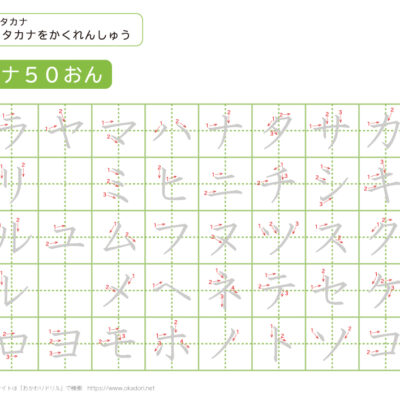 タカナ
タカナをかくれんしゅう
ナ５０おん
ラ ヤ マ ハ ナ タ サ カ
リ ミ ヒ ニ チ シ キ
ル ユ ム フ ヌ ツ ス ク
レ メ ヘ ネ テ セ ケ
ロ ヨ モ ホ ノ ト ソ コ
イトは「おかわりドリル」で検索 https://www.okadori.net